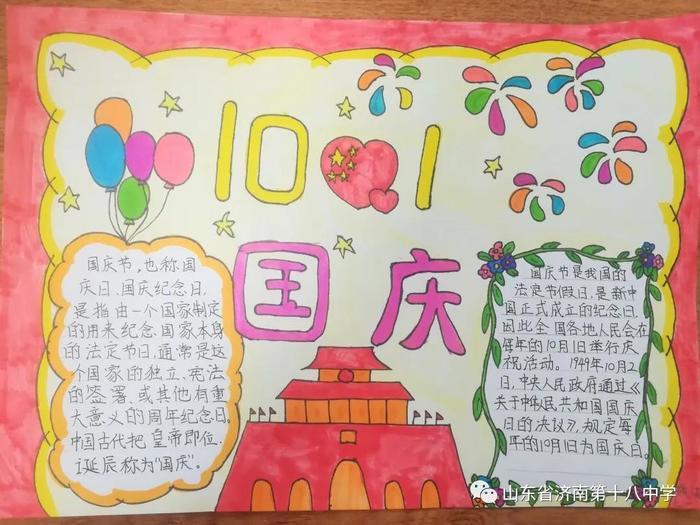 10 1
国庆
国庆节,也称国
庆日、国庆纪念日,
是指由一个国家制定
的用来纪念国家本身
的法定节日,通常是这
个国家的独立、宪法
的签署、或其他有重
大意义的周年纪念日。
中国古代把皇帝即位、
诞辰称为“国庆”。
国庆节是我国的
法定节假日,是新中
国正式成立的纪念日,
因此全国各地人民会在
每年的10月1日举行庆
祝活动。1949年10月2
日,中央人民政府通过《
关于中华人民共和国国庆
日的决议》,规定每
年的10月1日为国庆日。
山东省济南第十八中学